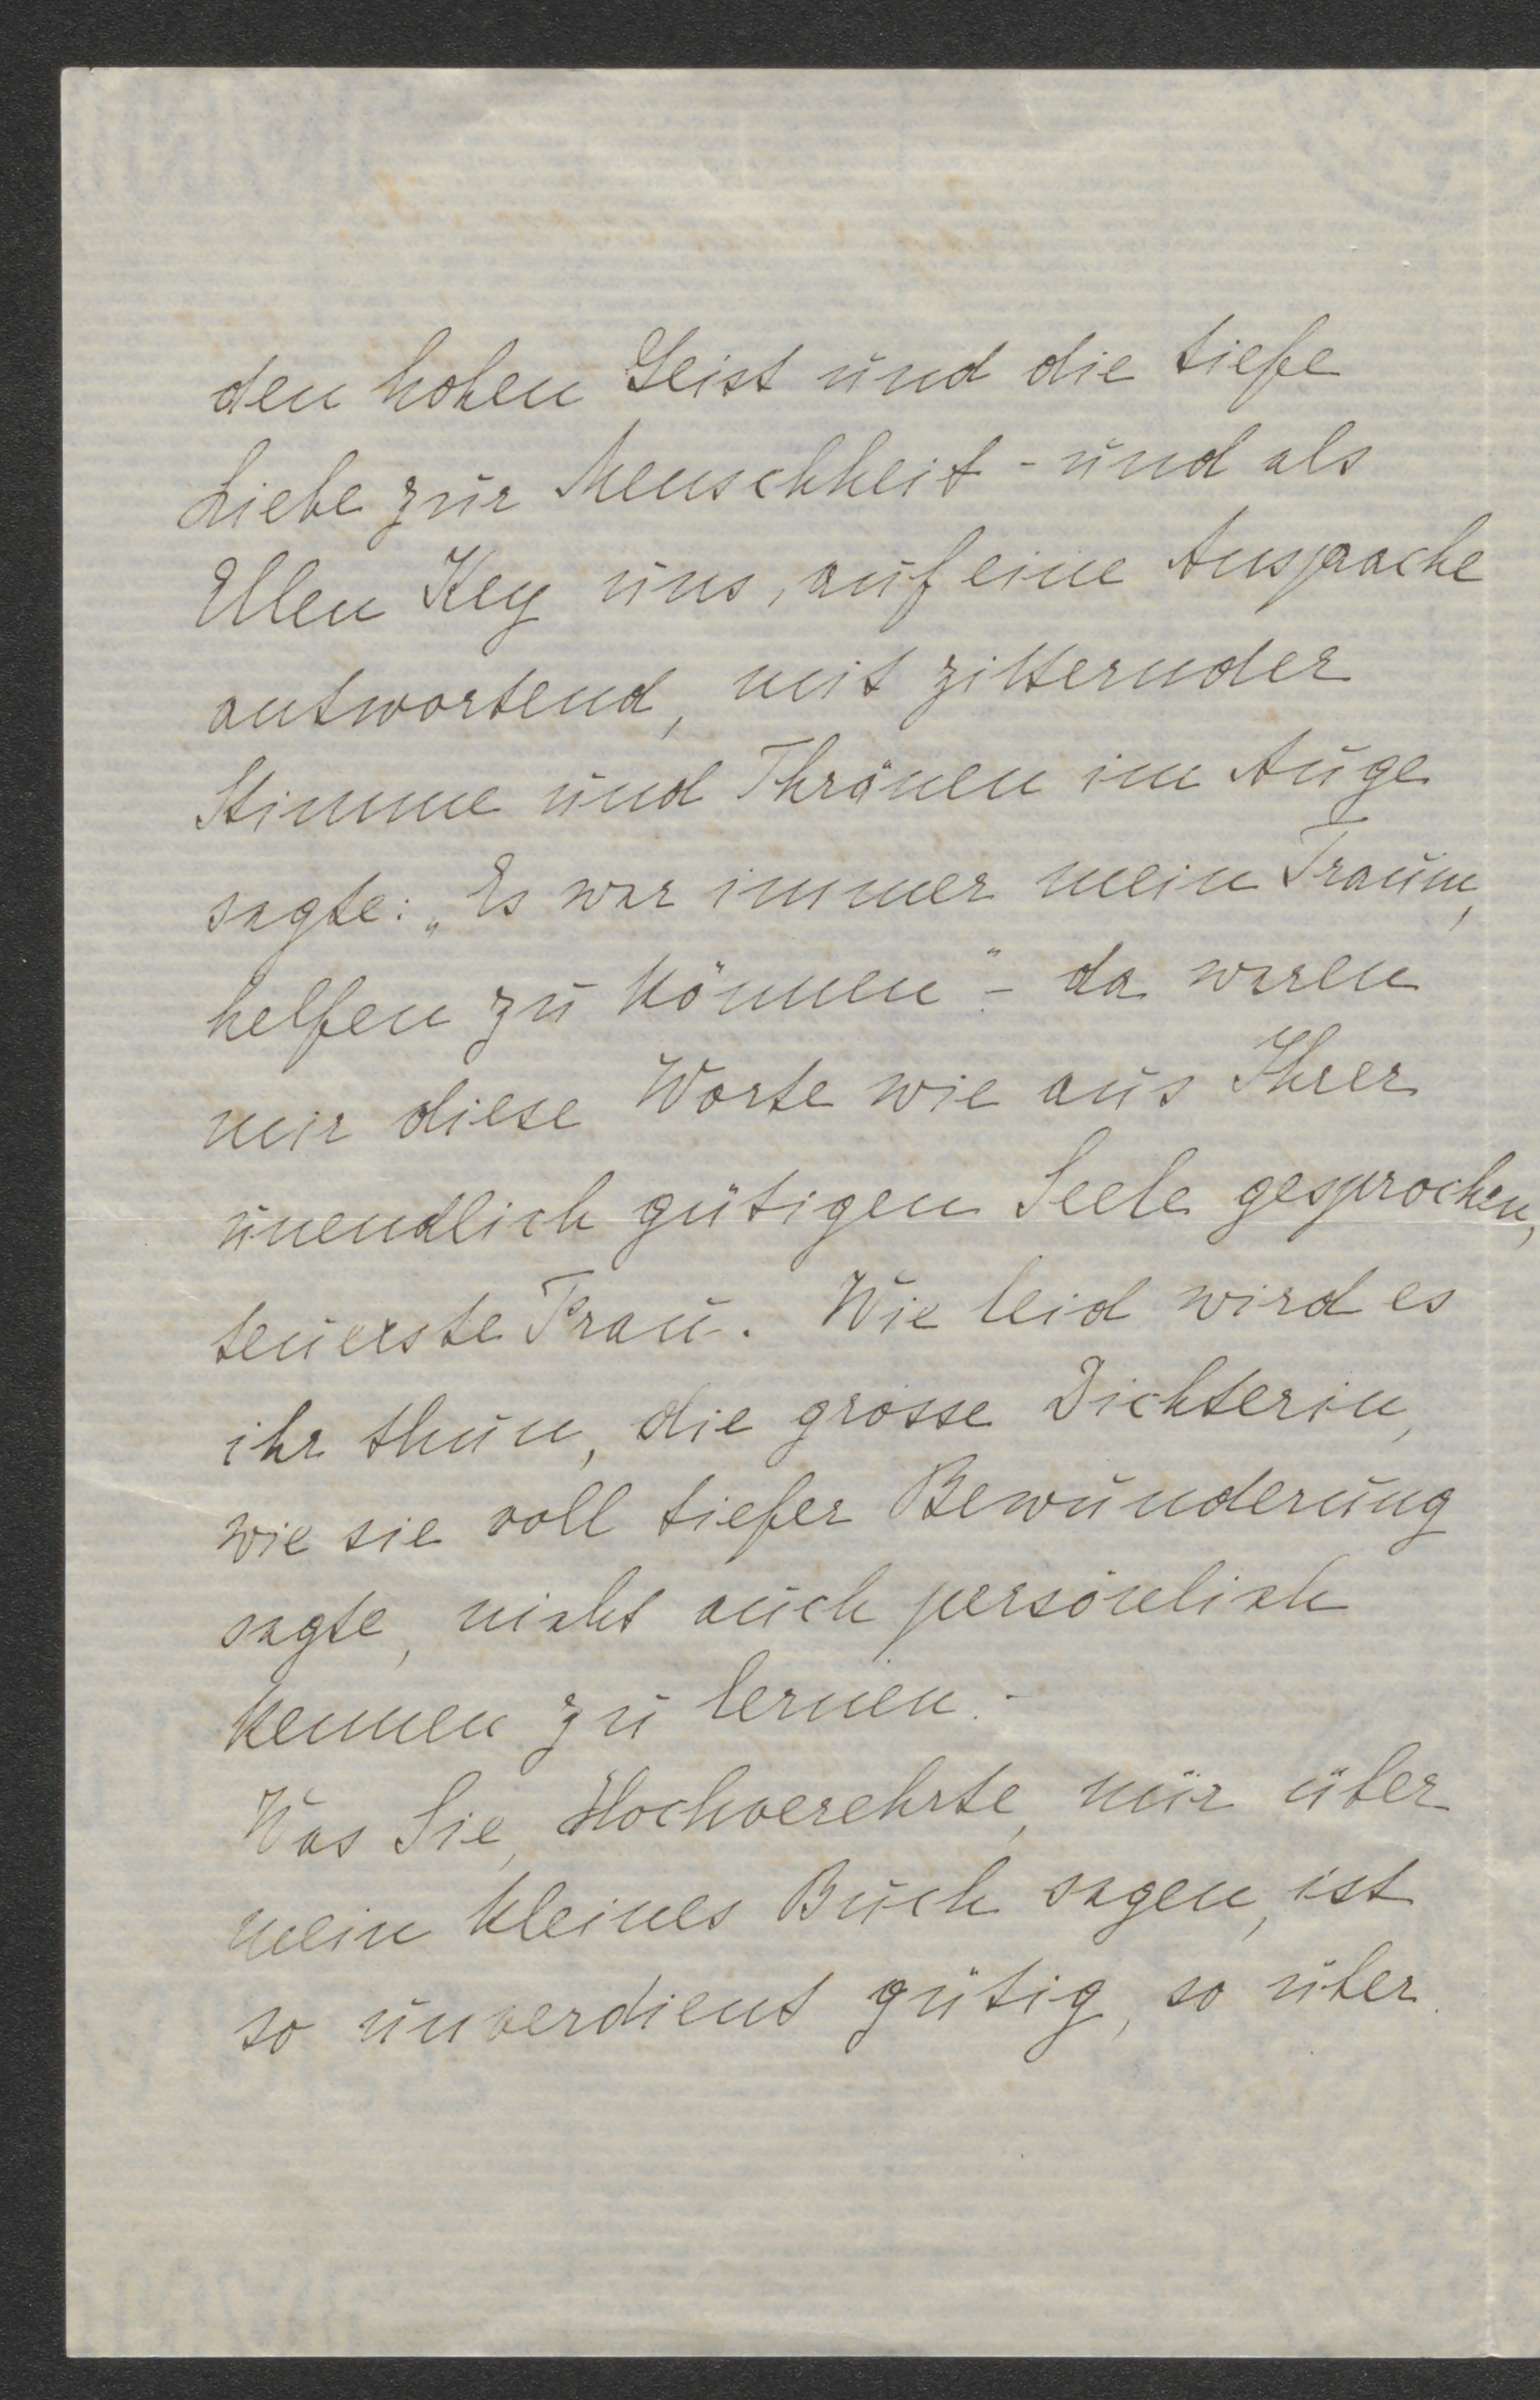 den hohen Geist und die tiefe
Liebe zur Menschheit - und als
Ellen Key uns, auf eine Ansprache
antwortend, mit zitternder
Stimme und Thränen im Auge
sagte: „Es war immer mein Traum,
helfen zu können" - da waren
mir diese Worte wie aus Ihrer
unendlich gütigen Seele gesprochen,
teuerste Frau. Wie leid wird es
ihr thun, die grosse Dichterin,
wie sie voll tiefer Bewunderung
sagte, nicht auch persönlich
kennen zu lernen. -
Was Sie, Hochverehrte, mir über
mein kleines Buch sagen, ist
so unverdient gütig, so über